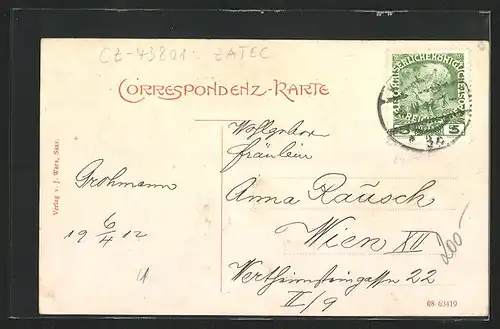 CZ-43801: ZATEC
CORRESPONDENZ-KARTE
KAISERLICHE KÖNIGLICHE
5 5
Verlag v. J. Wara, Saaz.
Grohmann
19 6/4 12
Wohlgebor
Fräulein
Anna Rausch
Wien XII
Wertheimsteingasse 22
II/9
200-
08 63419